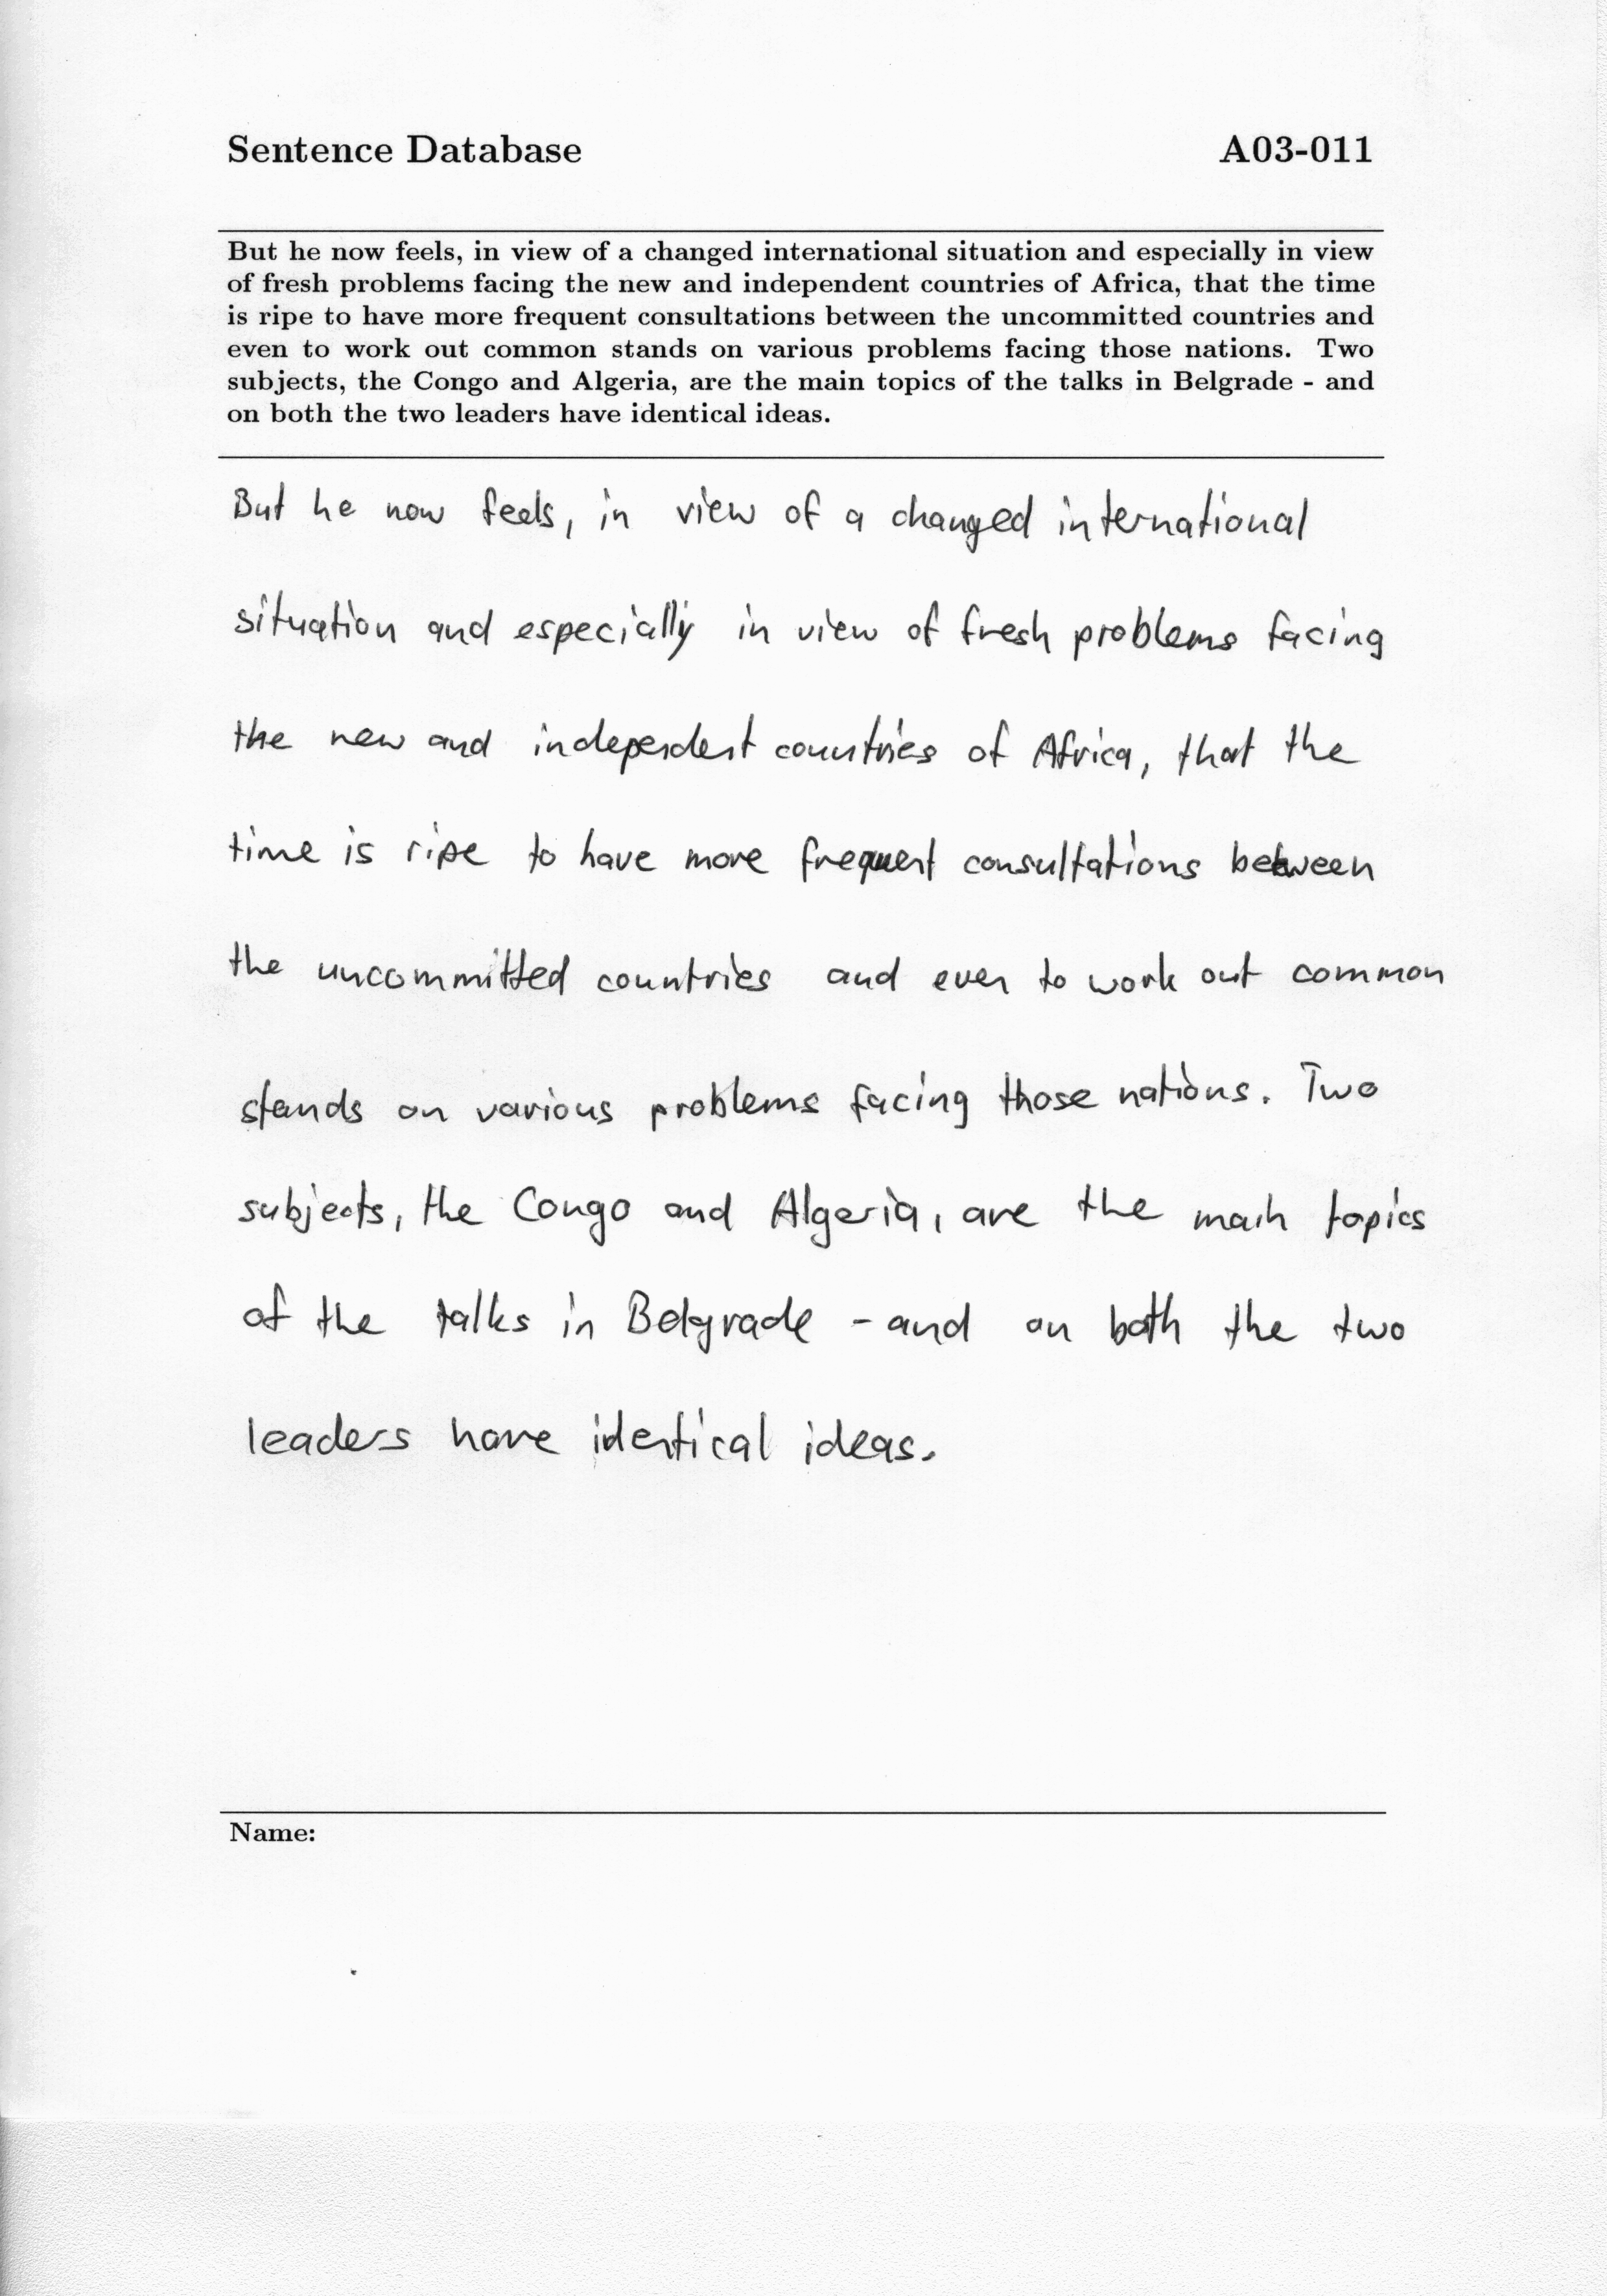 Sentence Database A03-011
But he now feels, in view of a changed international situation and especially in view
of fresh problems facing the new and independent countries of Africa, that the time
is ripe to have more frequent consultations between the uncommitted countries and
even to work out common stands on various problems facing those nations. Two
subjects, the Congo and Algeria, are the main topics of the talks in Belgrade - and
on both the two leaders have identical ideas.
But he now feels, in view of a changed international
situation and especially in view of fresh problems facing
the new and independent countries of Africa, that the
time is ripe to have more frequent consultations between
the uncommitted countries and even to work out common
stands on various problems facing those nations. Two
subjects, the Congo and Algeria, are the main topics
of the talks in Belgrade - and on both the two
leaders have identical ideas.
Name: